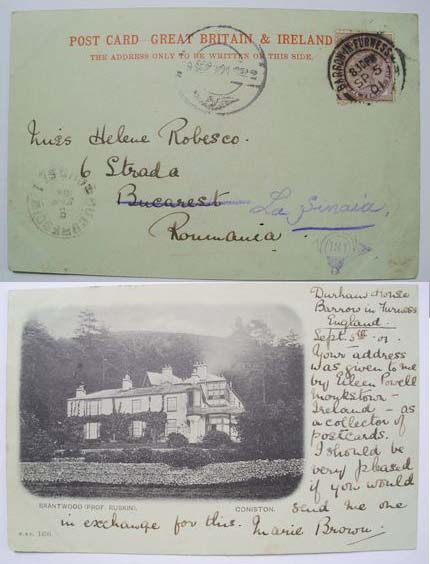 POST CARD GREAT BRITAIN & IRELAND
THE ADDRESS ONLY TO BE WRITTEN ON THIS SIDE.
BARROW-IN-FURNESS
SP 5
01
Miss Helene Robesco.
6 Strada
Bucarest
La Sinaia
Roumania
Durham House
Barrow in Furness
England.
Sept. 5th 01.
Your address
was given to me
by Eileen Powell
Monkstown -
Ireland - as
a collector of
postcards.
I should be
very pleased
if you would
send me one
in exchange for this. Marie Brown.
BRANTWOOD (PROF. RUSKIN), CONISTON.